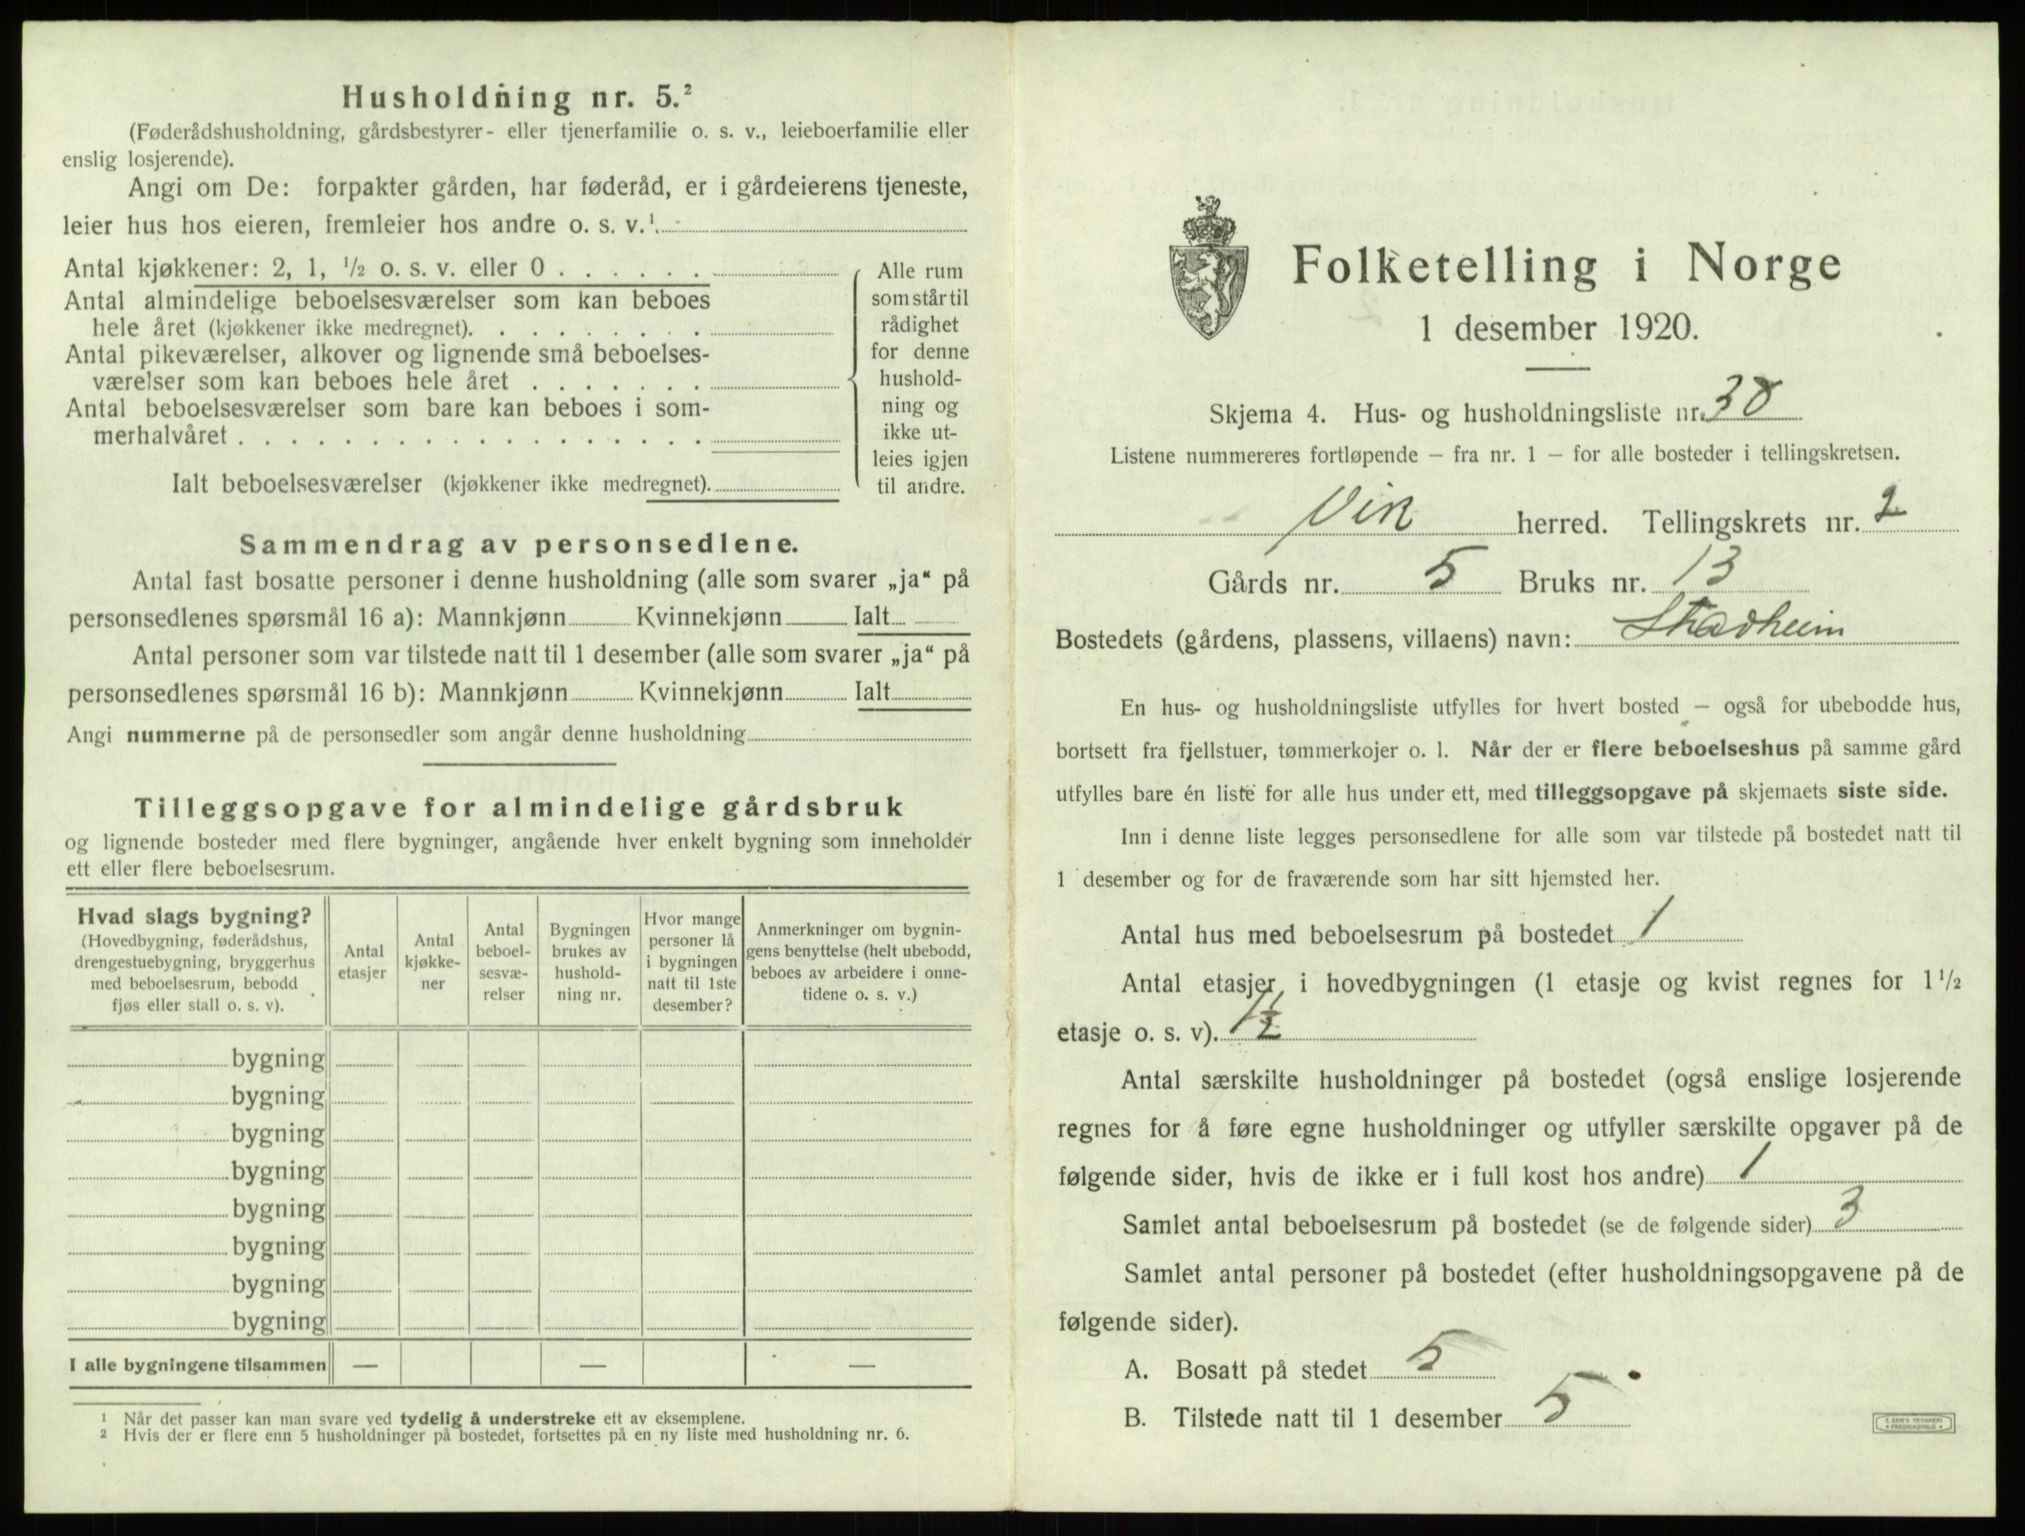 Husholdning nr. 5.²
(Føderådshusholdning, gårdsbestyrer- eller tjenerfamilie o. s. v., leieboerfamilie eller
enslig losjerende).
Angi om De: forpakter gården, har føderåd, er i gårdeierens tjeneste,
leier hus hos eieren, fremleier hos andre o. s. v.¹
Antal kjøkkener: 2, 1, ½ o. s. v. eller 0 . . . . . .
Antal almindelige beboelsesværelser som kan beboes
hele året (kjøkkener ikke medregnet). . . . . . . . .
Antal pikeværelser, alkover og lignende små beboelses-
værelser som kan beboes hele året . . . . . . .
Antal beboelsesværelser som bare kan beboes i som-
merhalvåret . . . . . . . . . . . . . . . . . .
Ialt beboelsesværelser (kjøkkener ikke medregnet).
Alle rum
som står til
rådighet
for denne
hushold-
ning og
ikke ut-
leies igjen
til andre.
Sammendrag av personsedlene.
Antal fast bosatte personer i denne husholdning (alle som svarer „ja“ på
personsedlenes spørsmål 16 a): Mannkjønn Kvinnekjønn Ialt
Antal personer som var tilstede natt til 1 desember (alle som svarer „ja“ på
personsedlenes spørsmål 16 b): Mannkjønn Kvinnekjønn Ialt
Angi nummerne på de personsedler som angår denne husholdning
Tilleggsopgave for almindelige gårdsbruk
og lignende bosteder med flere bygninger, angående hver enkelt bygning som inneholder
ett eller flere beboelsesrum.
Hvad slags bygning?
(Hovedbygning, føderådshus,
drengestuebygning, bryggerhus
med beboelsesrum, bebodd
fjøs eller stall o. s. v).
Antal
etasjer
Antal
kjøkke-
ner
Antal
beboel-
sesvæ-
relser
Bygningen
brukes av
hushold-
ning nr.
Hvor mange
personer lå
i bygningen
natt til 1ste
desember?
Anmerkninger om bygnin-
gens benyttelse (helt ubebodd,
beboes av arbeidere i onne-
tidene o. s. v.)
bygning
bygning
bygning
bygning
bygning
bygning
bygning
bygning
I alle bygningene tilsammen — — —
¹ Når det passer kan man svare ved tydelig å understreke ett av eksemplene.
² Hvis der er flere enn 5 husholdninger på bostedet, fortsettes på en ny liste med husholdning nr. 6.
Folketelling i Norge
1 desember 1920.
Skjema 4. Hus- og husholdningsliste nr. 38
Listene nummereres fortløpende – fra nr. 1 – for alle bosteder i tellingskretsen.
Vik herred. Tellingskrets nr. 2
Gårds nr. 5 Bruks nr. 13
Bostedets (gårdens, plassens, villaens) navn:
En hus- og husholdningsliste utfylles for hvert bosted – også for ubebodde hus,
bortsett fra fjellstuer, tømmerkojer o. l. Når der er flere beboelseshus på samme gård
utfylles bare én liste for alle hus under ett, med tilleggsopgave på skjemaets siste side.
Inn i denne liste legges personsedlene for alle som var tilstede på bostedet natt til
1 desember og for de fraværende som har sitt hjemsted her.
Antal hus med beboelsesrum på bostedet 1
Antal etasjer i hovedbygningen (1 etasje og kvist regnes for 1½
etasje o. s. v). 1½
Antal særskilte husholdninger på bostedet (også enslige losjerende
regnes for å føre egne husholdninger og utfyller særskilte opgaver på de
følgende sider, hvis de ikke er i full kost hos andre) 1
Samlet antal beboelsesrum på bostedet (se de følgende sider) 3
Samlet antal personer på bostedet (efter husholdningsopgavene på de
følgende sider).
A. Bosatt på stedet 5
B. Tilstede natt til 1 desember 5
E. SEM'S TRYKKERI
FREDRIKSHALD